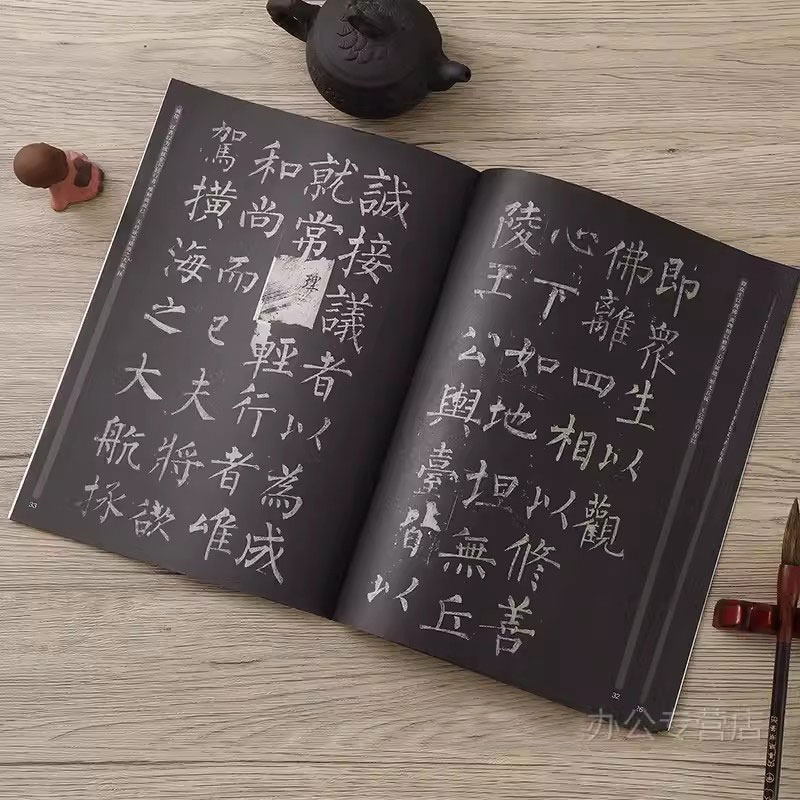 即衆生以觀
佛離四相以修善
心下如地坦無丘
陵王公輿臺皆以
32
誠接議者以為成
就常輕行者唯
和尚而已夫將欲
駕橫海之大航拯
33
办公专营店